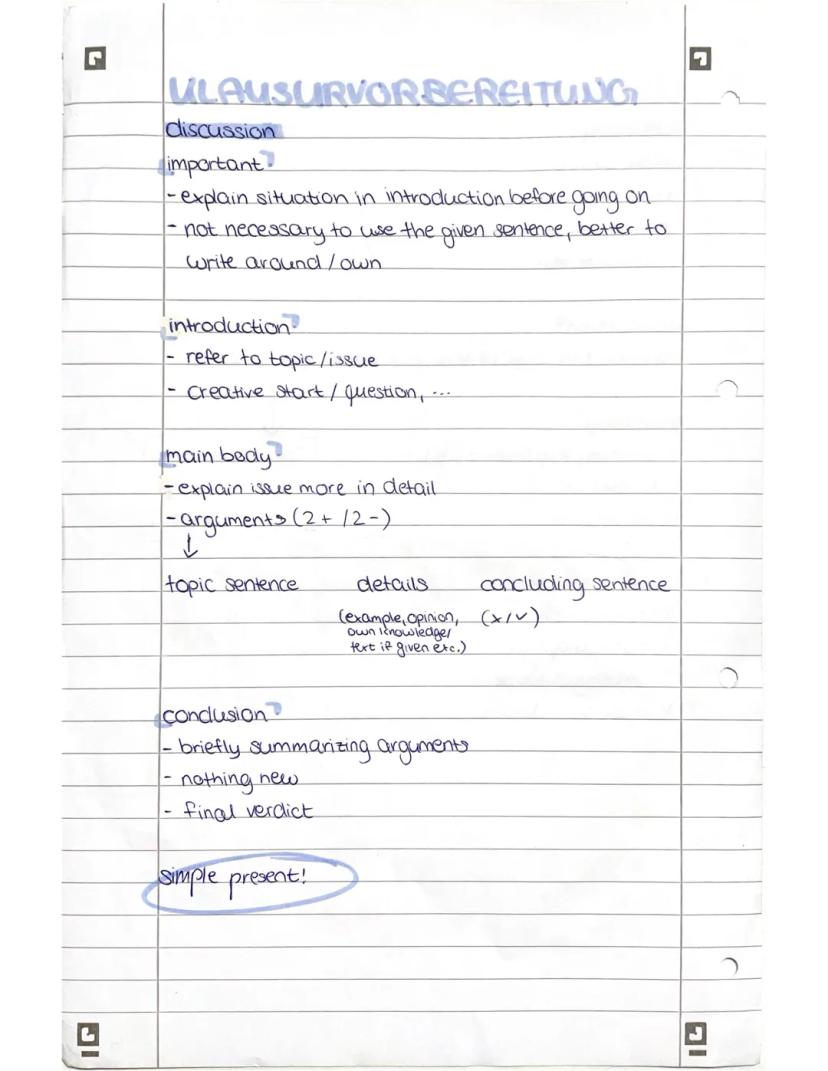 KLAUSURVORBEREITUNG
discussion
important:
- explain situation in introduction before going on
- not necessary to use the given sentence, better to
write around / own
introduction:
- refer to topic / issue
- creative start / question, ...
main body:
- explain issue more in detail
- arguments (2+ / 2-)
↓
topic sentence details concluding sentence
(example, opinion, (x/✓)
own knowledge,
text if given etc.)
conclusion:
- briefly summarizing arguments
- nothing new
- final verdict
simple present!